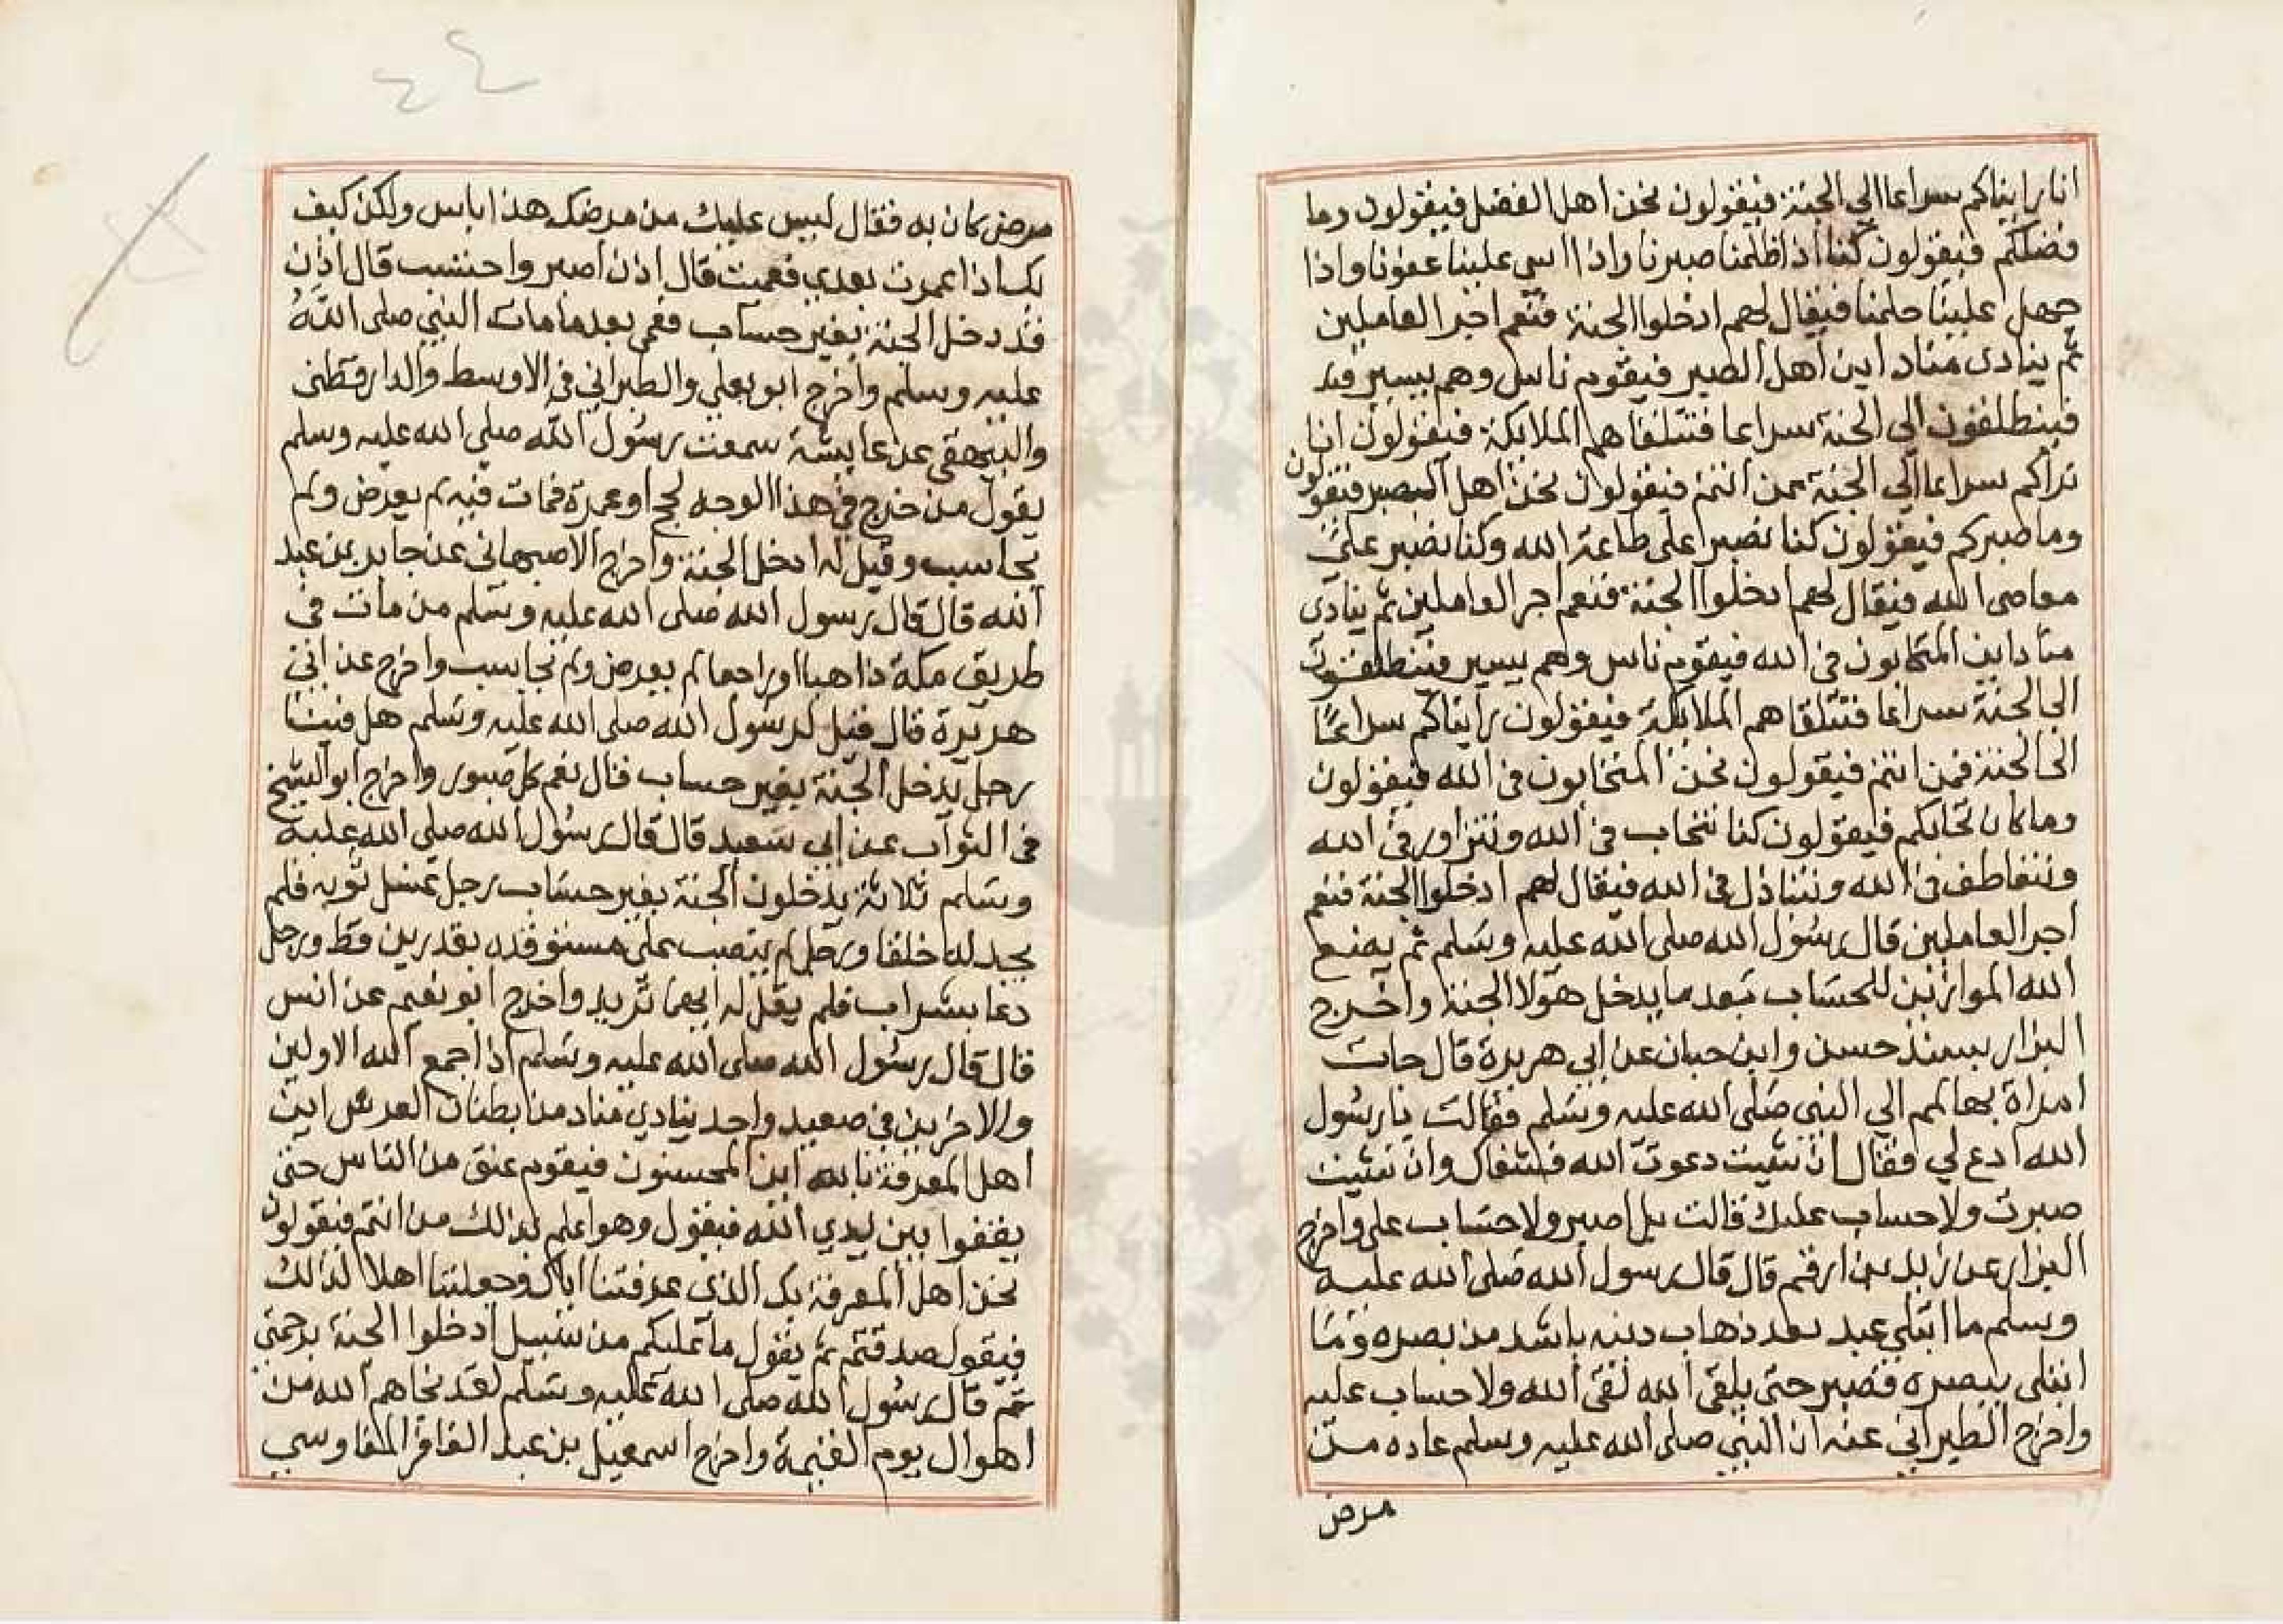 انا رايناكم سراعا الي الجنة فيقولون نحن اهل الفضل فيقولون وما
فضلكم فيقولون كنا اذا ظلمنا صبرنا واذا اسي علينا عفونا واذا
جهل علينا حلمنا فيقال لهم ادخلوا الجنة فنعم اجر العاملين
ثم ينادى مناد اين اهل الصبر فيقوم ناس وهم يسير
فينطلقون الي الجنة سراعا فتتلقاهم الملايكة فيقولون انا
نراكم سراعا الي الجنة من انتم فيقولون نحن اهل الصبر فيقولون
وما صبركم فيقولون كنا نصبر على طاعة الله وكنا نصبر على
معاصى الله فيقال لهم ادخلوا الجنة فنعم اجر العاملين ثم ينادى
مناد اين المتحابون فى الله فيقوم ناس وهم يسير فينطلقون
الى الجنة سراعا فتتلقاهم الملايكة فيقولون رايناكم سراعا
الى الجنة فمن انتم فيقولون نحن المتحابون فى الله فيقولون
وما كان تحابكم فيقولون كنا نتحاب فى الله ونتزاور فى الله
ونتعاطف فى الله ونتباذل فى الله فيقال لهم ادخلوا الجنة فنعم
اجر العاملين قال رسول الله صلى الله عليه وسلم ثم يضع
الله الموازين للحساب بعد ما يدخل هولا الجنة واخرج
البزار بسند حسن وابن حبان عن ابي هريرة قال جات
امراة بها لمم الي النبى صلى الله عليه وسلم فقالت يا رسول
الله ادع لي فقال ان شيت دعوت الله فشفاك وان شيت
صبرت ولا حساب عليك قالت بل اصبر ولا حساب علي واخرج
البزار عن زيد بن ارقم قال قال رسول الله صلى الله عليه
وسلم ما ابتلي عبد بعد ذهاب دينه باشد من بصره وما
ابتلى ببصره فصبر حتى يلقى الله لقى الله ولا حساب عليه
واخرج الطبراني عنه ان النبي صلى الله عليه وسلم عاده من
مرض
٤٤
مرض كان به فقال ليس عليك من مرضك هذا باس ولكن كيف
بك اذا عمرت بعدي فعميت قال اذن اصبر واحتسب قال اذن
قد دخل الجنة بغير حساب فعمى بعد ما مات النبي صلى الله
عليه وسلم واخرج ابو يعلي والطبراني فى الاوسط والدارقطنى
والبيهقى عن عايشة سمعت رسول الله صلى الله عليه وسلم
يقول من خرج في هذا الوجه لحج او عمرة فمات فيه لم يعرض ولم
يحاسب وقيل له ادخل الجنة واخرج الاصبهانى عن جابر بن عبد
الله قال قال رسول الله صلى الله عليه وسلم من مات فى
طريق مكة ذاهبا او راجعا لم يعرض ولم يحاسب واخرج عن ابى
هريرة قال قيل لرسول الله صلى الله عليه وسلم هل فينا
رجل يدخل الجنة بغير حساب قال نعم كل صبور واخرج ابو الشيخ
فى الثواب عن ابي سعيد قال قال رسول الله صلى الله عليه
وسلم ثلاثة يدخلون الجنة بغير حساب رجل غسل ثوبه فلم
يجد له خلقا ورجل لم ينصب على مستوقده بقدرين قط ورجل
دعا بشراب فلم يقل له ايهما تريد واخرج ابو نعيم عن انس
قال قال رسول الله صلى الله عليه وسلم اذا جمع الله الاولين
والاخرين في صعيد واحد ينادي مناد من بطنان العرش اين
اهل المعرفة بالله اين المحسنون فيقوم عنق من الناس حتى
يقفوا بين يدي الله فيقول وهو اعلم بذالك من انتم فيقولون
نحن اهل المعرفة بك الذي عرفتنا اياك وجعلتنا اهلا لذالك
فيقول صدقتم ثم يقول ما عليكم من سبيل ادخلوا الجنة برحمتى
ثم قال رسول الله صلى الله عليه وسلم لقد نجاهم الله من
اهوال يوم القيمة واخرج اسمعيل بن عبد الغافر